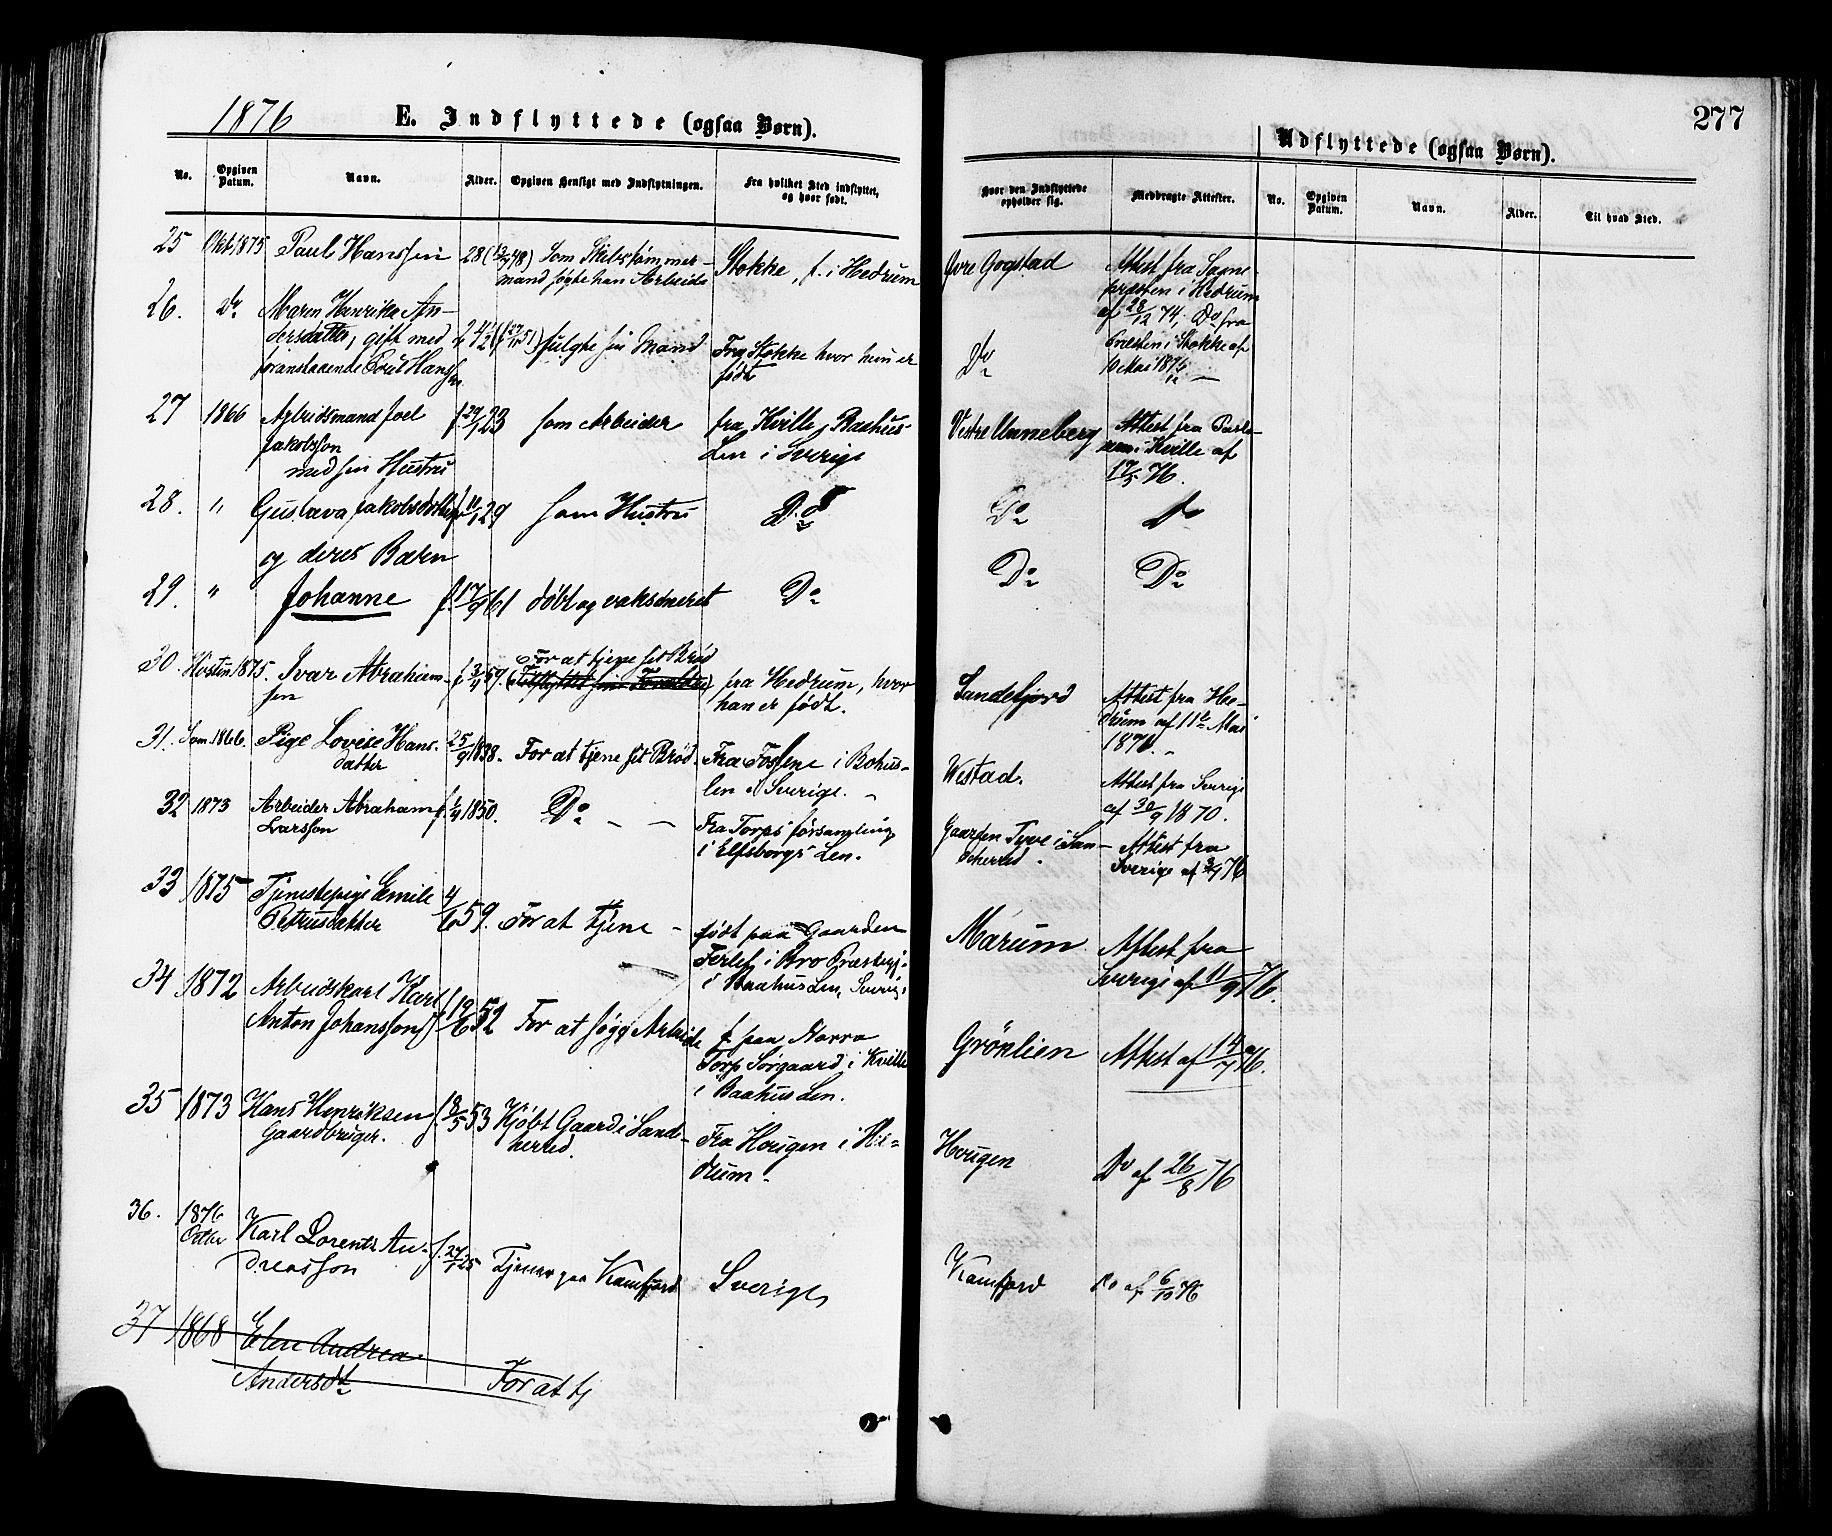 1876
E. Indflyttede (ogsaa Børn).
No.
Opgiven
Datum.
Navn.
Alder.
Opgiven Hensigt med Indflytningen.
Fra hvilket Sted indflyttet,
og hvor født.
25 Okt 1875 Paul Hanssen 28 (48) Som Skibstømmer-
mand søgte han Arbeide
Stokke, f. i Hedrum
26. Do Maren Henrikke An-
dersdatter, gift med
foranstaaende Poul Hans-
sen
fulgte sin Mand
Fra Stokke hvor hun er
født
27 1866 Arbeidsmand Joel
Jakobsson
med sin Hustru
f. 29/1 23 som Arbeider
fra Kville, Baahus
Len i Sverige
28. " Gustava Jakobsdatter f. 11/1 29 som Hustru Do
og deres Børn
29. " Johanne f. 17/9 61 døbt og vaksineret Do
30. Høsten 1875. Ivar Abraham-
sen
f. 3/4 59. For at tjene sit Brød
fra Hedrum, hvor
han er født.
31. Som. 1866. Pige Lovise Hans-
datter
25/9 1838. For at tjene sit Brød.
Fra Fossene i Bohus-
len i Sverige. -
32 1873 Arbeider Abraham
Larsson
f. 1/4 1850. Do - -
Fra Torps forsamling
i Elfsborgs Len.
33 1875 Tjenestepige Emilie
Petrusdatter
4/10 59. For at tjene -
født paa Gaarden
i Bro Præstegj.
i Baahus Len, Sverige
34 1872 Arbeidskarl Karl
Anton Johansson
f. 19/6 52 For at søge Arbeide
f. paa Norra
Torp Sørgaard i Kville
i Baahus Len.
35 1873 Hans Henriksen
Gaardbruger.
f. 13/5 53 Kjøbt Gaard i Sand-
herred.
Fra Hougen i He-
drum.
36. 1876
Octbr
Karl Lorents An-
dreasson
f. 24/1 25 Tjener paa Kamfjord Sverige
37 1868 Elen Andrea
Andersdt
For at tj
277
Udflyttede (ogsaa Børn).
Hvor den Indflyttede
opholder sig.
Medbragte Attester.
No.
Opgiven
Datum.
Navn.
Alder.
Til hvad Sted.
Øvre Gogstad
Attest fra Sogne-
præsten i Hedrum
af 28/12 74; Do fra
Præsten i Stokke af
10 Mai 1876 -
Do
Vestre Unneberg
Attest fra
i Kville af
17/5 76.
Do Do
Do Do
Sandefjord
Attest fra He-
drum af 11te Mai
1876. -
Westad.
Attest fra Sverige
af 30/9 1870.
Gaarden Tyve i San-
deherred.
Attest fra
Sverige af 3/9 76
Marum
Attest fra
Sverige af 11/9 76.
Grönlien
Attest af 14/7 76.
Hougen
Do af 26/8 76
Kamfjord
Do af 6/10 76